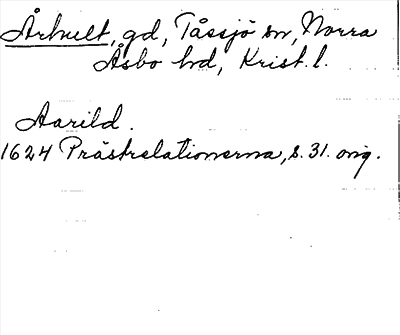 Århult, gd, Tåssjö sn, Norra
Åsbo hd, Krist. l.
Aarild.
1624 Prästrelationerna, s. 31. orig.